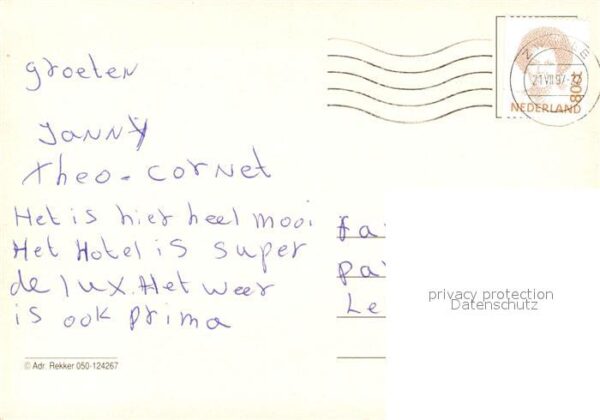 groeten
Janny
theo-cornet
Het is hier heel mooi
Het Hotel is super
de lux. Het weer
is ook prima
fa
pa
Le
21 VII 97
80c
NEDERLAND
privacy protection
Datenschutz
© Adr. Rekker 050-124267